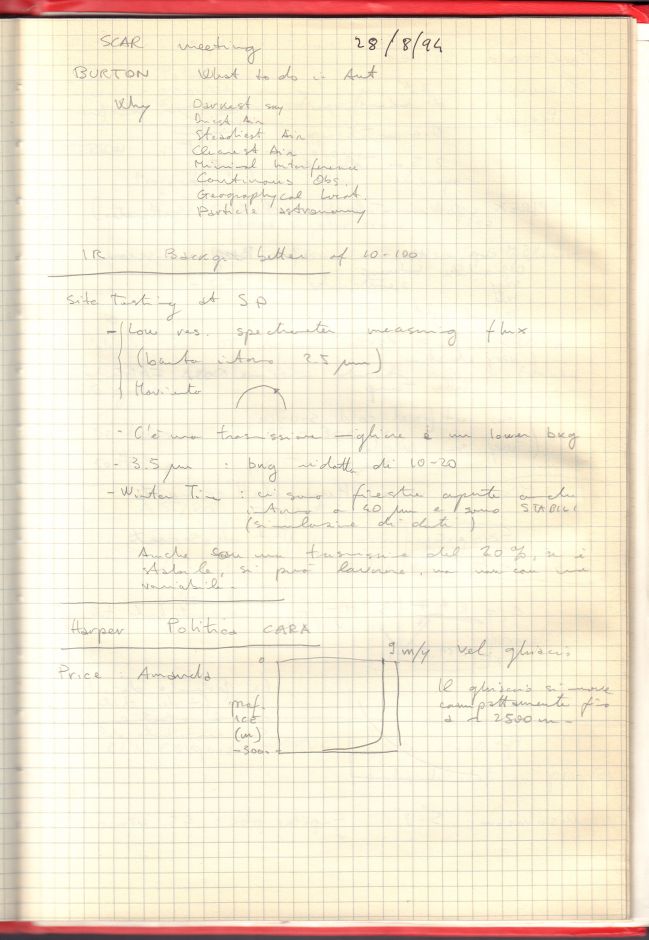 SCAR meeting 28/8/94
BURTON What to do in Ant
Why Darkest sky
Driest Air
Steadiest Air
Clearest Air
Minimal Interference
Continuous Obs.
Geographycal Locat.
Particle astronomy
IR Backg. better of 10-100
Site Testing at SP
- Low res. spectrometer measuring flux
(banda intorno 2.5 μm)
Movimento
- C'è una trasmissione migliore e un lower bkg
- 3.5 μm : bkg ridotta di 10-20
- Winter Time : ci sono finestre aperte anche
intorno a 40 μm e sono STABILI
(simulazione di dati)
Anche con una trasmissione del 20%, se è
stabile, si può lavorare, ma non con una
variabile.
Harper Politica CARA
9 m/y vel. ghiaccio
Price : Amanda 0
Il ghiaccio si muove
compattamente fino
a ~ 2500 m.
prof.
ICE
(m)
-3000